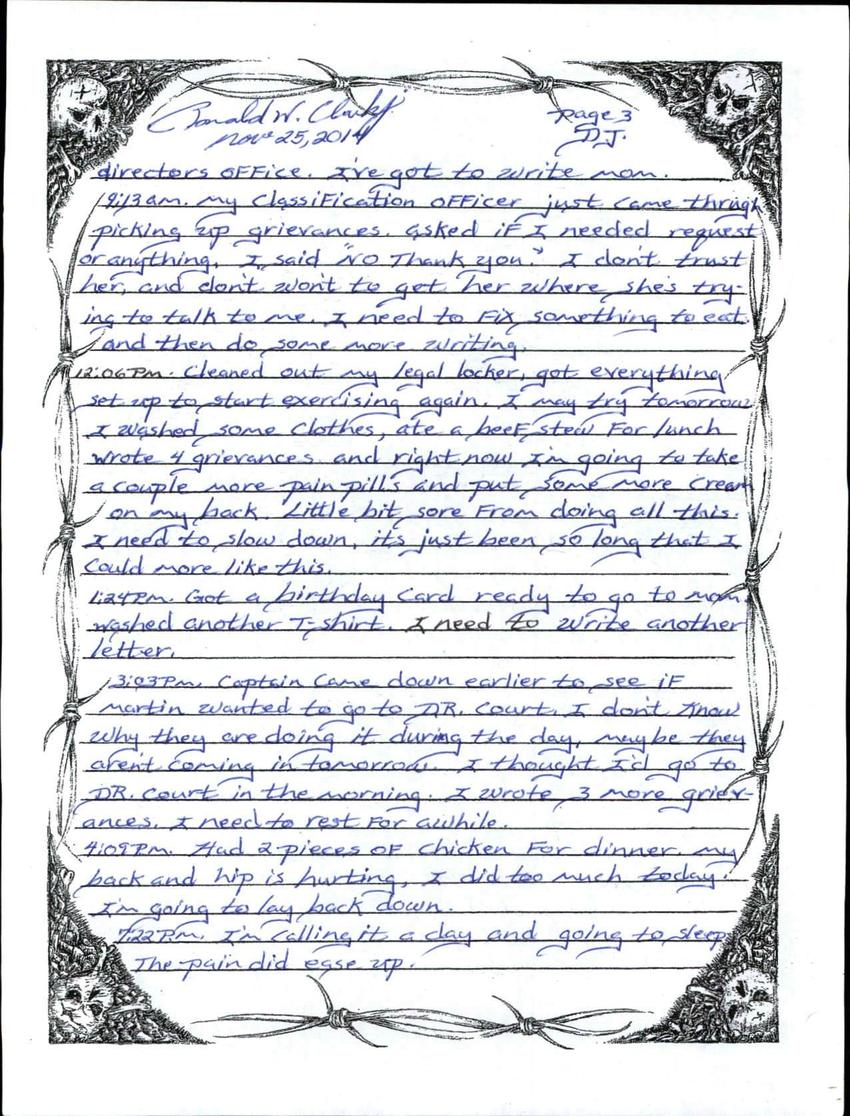 Ronald W. Clark Jr. page 3
Nov 25, 2014 D.J.
directors office. I've got to write mom.
9:13 am. my Classification officer just came through
picking up grievances. asked if I needed request
or anything, I said "No Thank you." I don't trust
her, and don't won't to get her where she's try-
ing to talk to me. I need to fix something to eat.
and then do some more writing.
12:06 Pm. Cleaned out my legal locker, got everything
set up to start exercising again. I may try tomorrow
I washed some Clothes, ate a beef stew for lunch
wrote 4 grievances and right now I'm going to take
a couple more pain pill's and put some more cream
on my back. Little bit sore from doing all this.
I need to slow down, it's just been so long that I
could more like this.
1:24 Pm. Got a birthday Card ready to go to mom.
washed another T-shirt. I need to write another
letter.
3:03 Pm. Captain Came down earlier to see if
martin wanted to go to DR. Court. I don't know
why they are doing it during the day, maybe they
aren't coming in tomorrow. I thought I'd go to
DR. Court in the morning. I wrote 3 more griev-
ances. I need to rest for awhile.
4:09 Pm. Had 2 pieces of chicken for dinner. my
back and hip is hurting, I did too much today.
I'm going to lay back down.
7:22 Pm. I'm calling it a day and going to sleep
The pain did ease up.